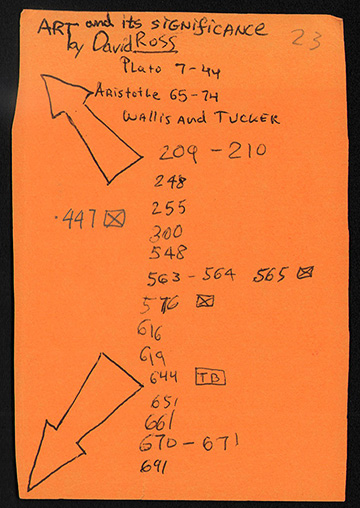 ART and its SIGNIFICANCE
by David ROSS
23
Plato 7-44
Aristotle 65-74
WALLIS AND TUCKER
209 - 210
248
255
.447
300
548
563 - 564 565
576
616
619
644 TB
651
661
670 - 671
691